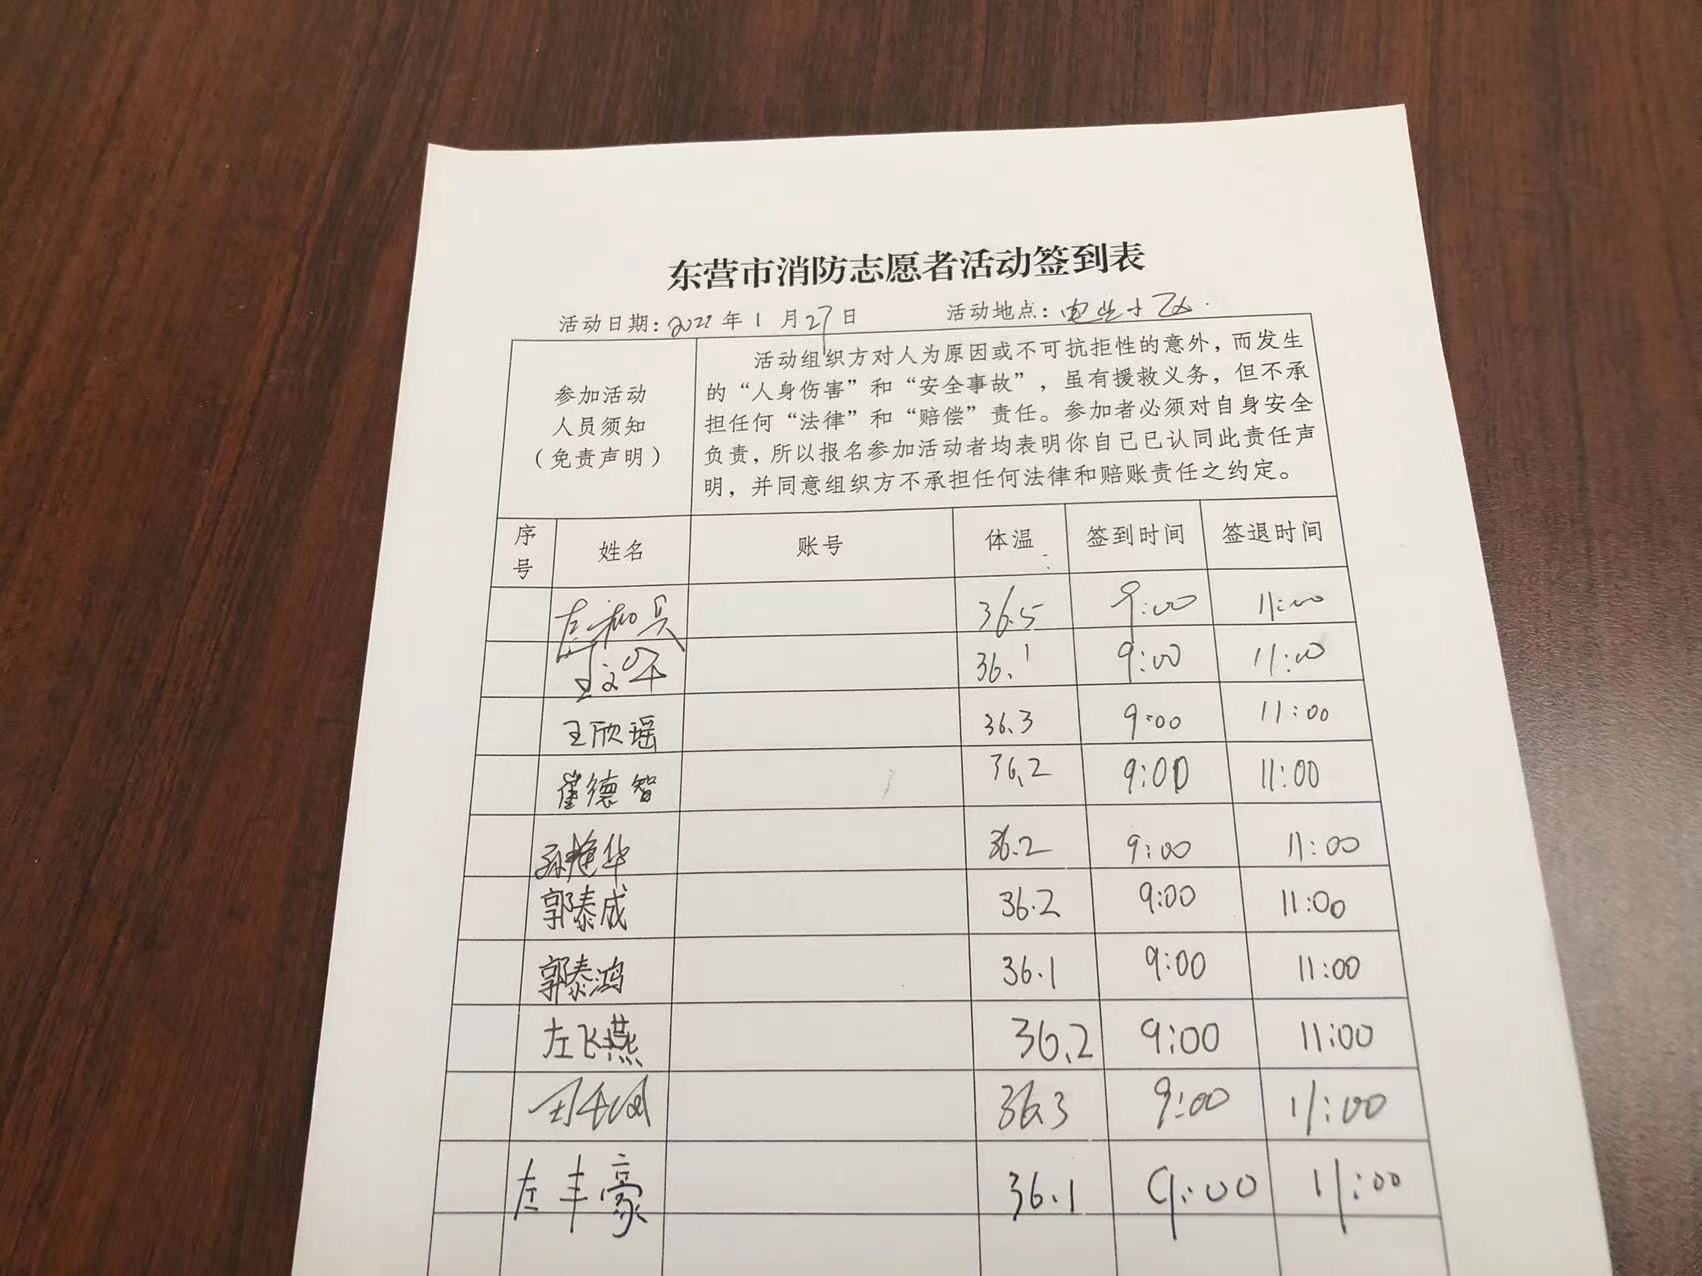 东营市消防志愿者活动签到表
活动日期：2022年1月27日 活动地点：电业小区.
参加活动
人员须知
（免责声明）
活动组织方对人为原因或不可抗拒性的意外，而发生
的“人身伤害”和“安全事故”，虽有援救义务，但不承
担任何“法律”和“赔偿”责任。参加者必须对自身安全
负责，所以报名参加活动者均表明你自己已认同此责任声
明，并同意组织方不承担任何法律和赔账责任之约定。
序号 姓名 账号 体温 签到时间 签退时间
36.5 9:00 11:00
36.1 9:00 11:00
王欣瑶 36.3 9:00 11:00
崔德智 36.2 9:00 11:00
孙艳华 36.2 9:00 11:00
郭泰成 36.2 9:00 11:00
郭泰鸿 36.1 9:00 11:00
左飞燕 36.2 9:00 11:00
36.3 9:00 11:00
左丰豪 36.1 9:00 11:00